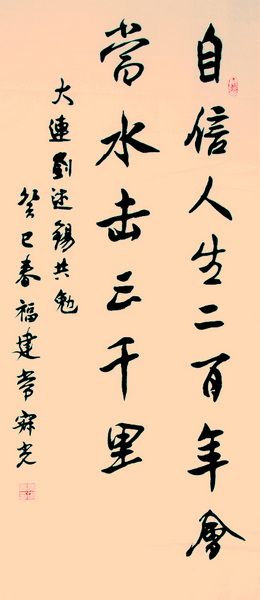 自信人生二百年會
當水击三千里
大連劉述錫共勉
癸巳春福建常光